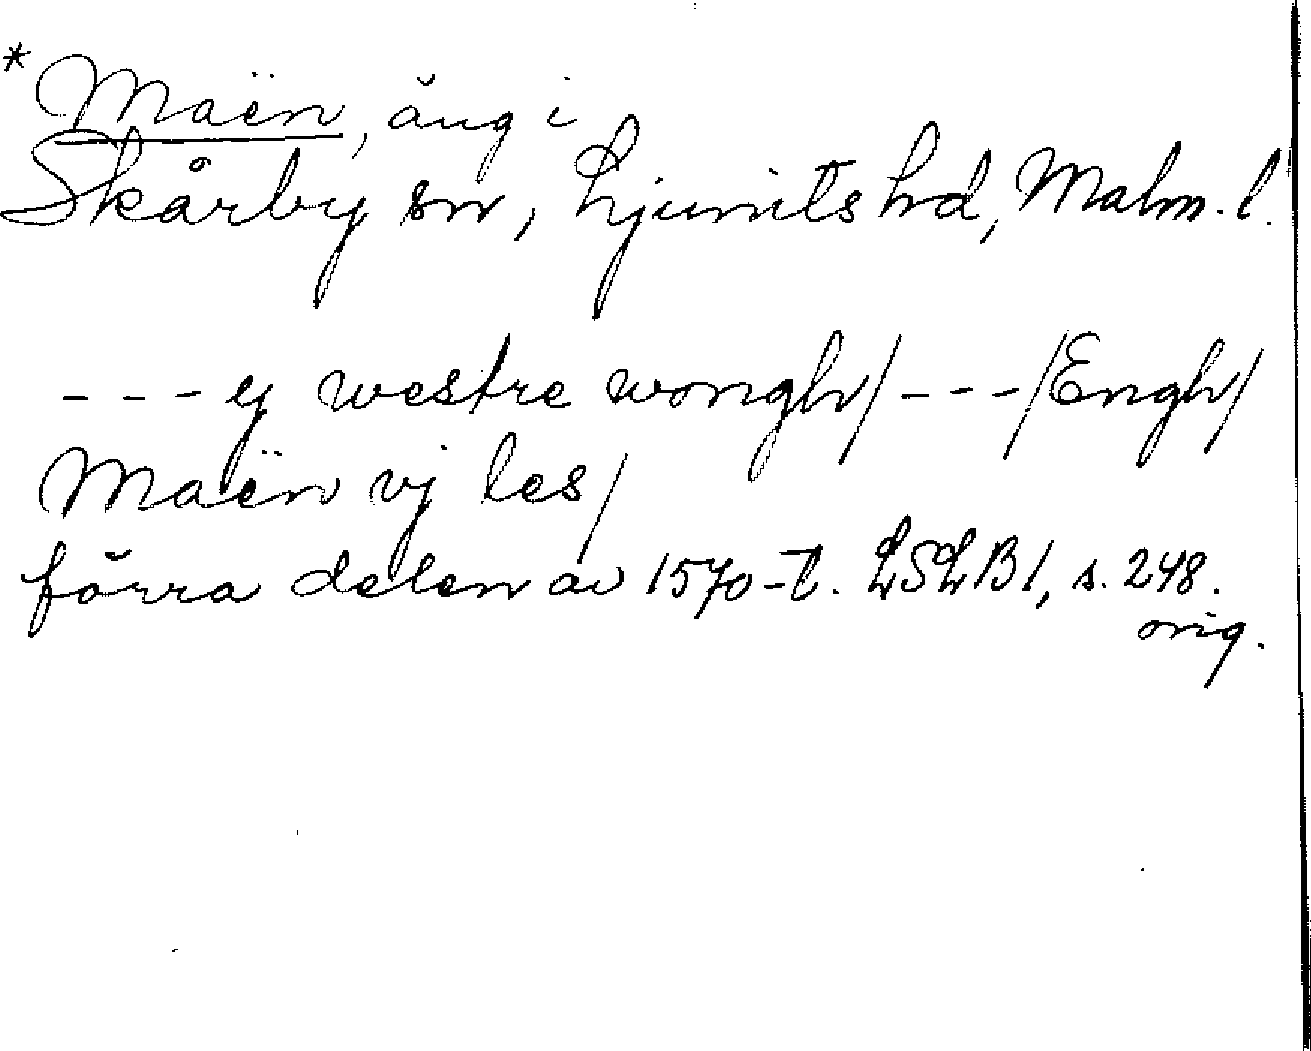 * Maën, äng i
Skårby sn, Ljunits hd, Malm. l.
--- ij westre wongh/ --- /Engh/
Maën vj les/
förra delen av 1570-t. LSLB1, s. 248.
orig.